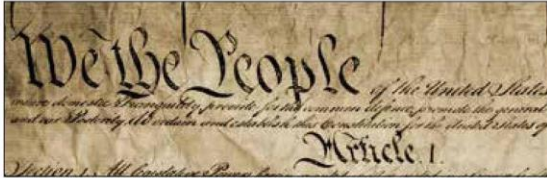 We the People of the United States
insure domestic Tranquility, provide for the common defence, promote the general
and our Posterity, do ordain and establish this Constitution for the United States of
Article. I.
Section. 1. All legislative Powers